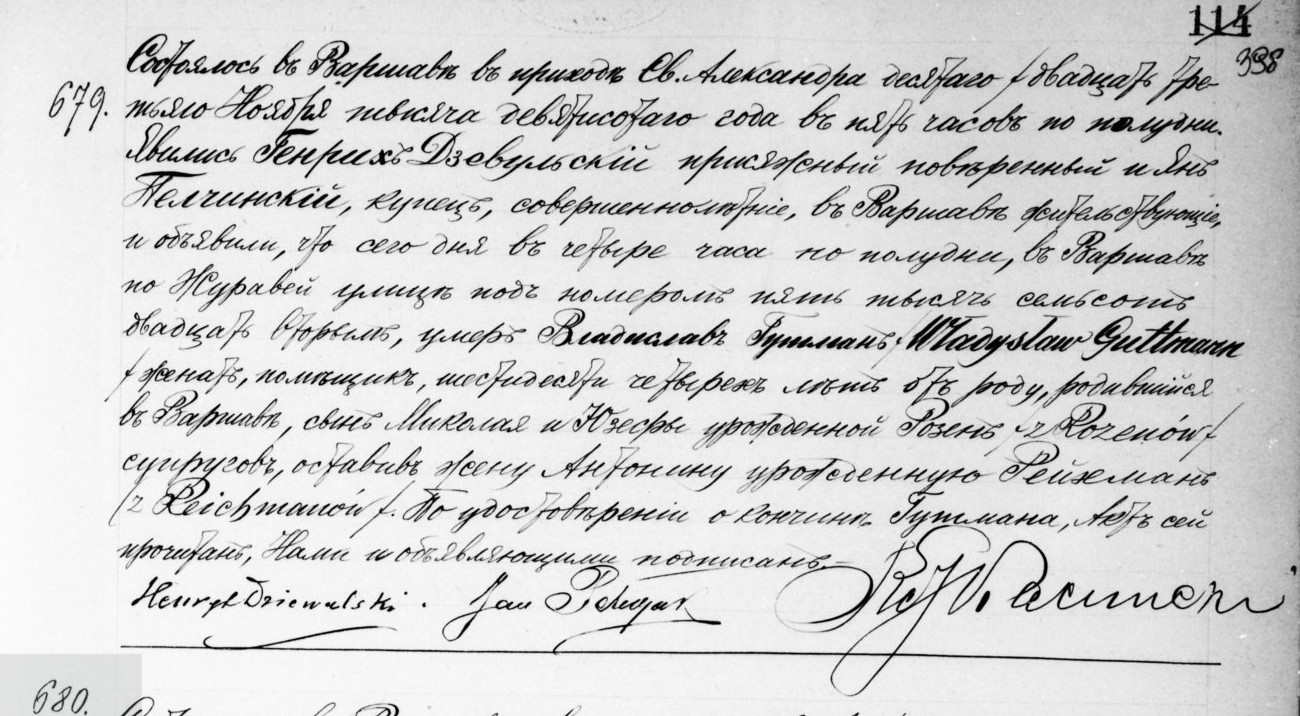 114
398
679.
Состоялось въ Варшавѣ въ приходѣ Св. Александра десятаго / двадцать тре-
тьяго Ноября тысяча девятисотаго года въ пять часовъ по полудни.
Явились Генрихъ Дзевульскій присяжный повѣренный и Янъ
Пелчинскій, купецъ, совершеннолѣтніе, въ Варшавѣ жительствующіе,
и объявили, что сего дня въ четыре часа по полудни, въ Варшавѣ
по Журавей улицѣ подъ номеромъ пять тысячъ семьсотъ
двадцать вторымъ, умеръ Владиславъ Гутманъ / Władysław Guttmann
/ женатъ, помѣщикъ, шестидесяти четырехъ лѣтъ отъ роду, родившійся
въ Варшавѣ, сынъ Миколая и Юзефы урожденной Розенъ / z Rozenów /
супруговъ, оставивъ жену Антонину урожденную Рейхманъ
/ z Reichmanów /. По удостовѣреніи о кончинѣ Гутмана, Актъ сей
прочитанъ, Нами и объявляющими подписанъ.–
Henryk Dziewulski. Jan
680.